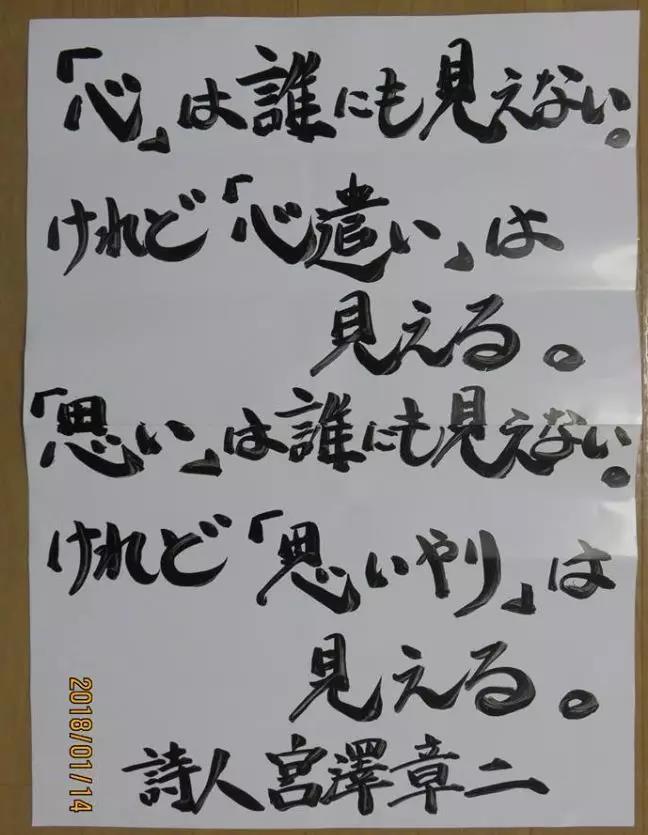 「心」は誰にも見えない。
けれど「心遣い」は
見える。
「思い」は誰にも見えない。
けれど「思いやり」は
見える。
詩人宮澤章二
2018/01/14